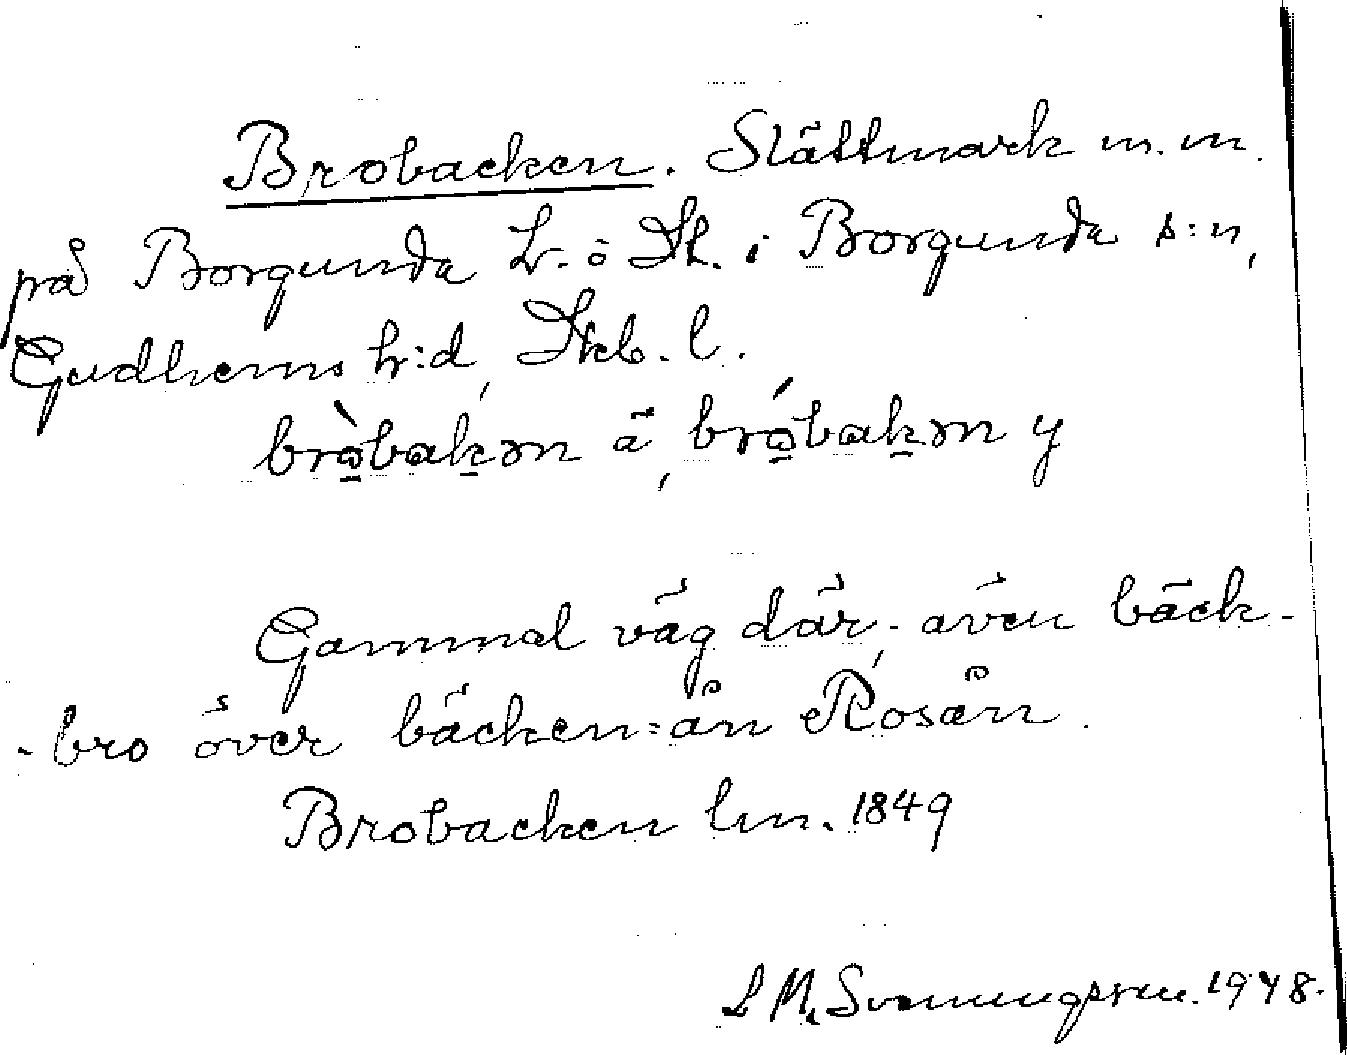 Brobacken. Slättmark m.m.
på Borgunda L. o St. i Borgunda s:n,
Gudhems h:d, Skb. l.
brò̱baḵən ä, bró̱baḵən y
Gammal väg där, även bäck-
-bro över bäcken=ån Rösån.
Brobacken lm. 1849
L M. Svenungsson. 1948.